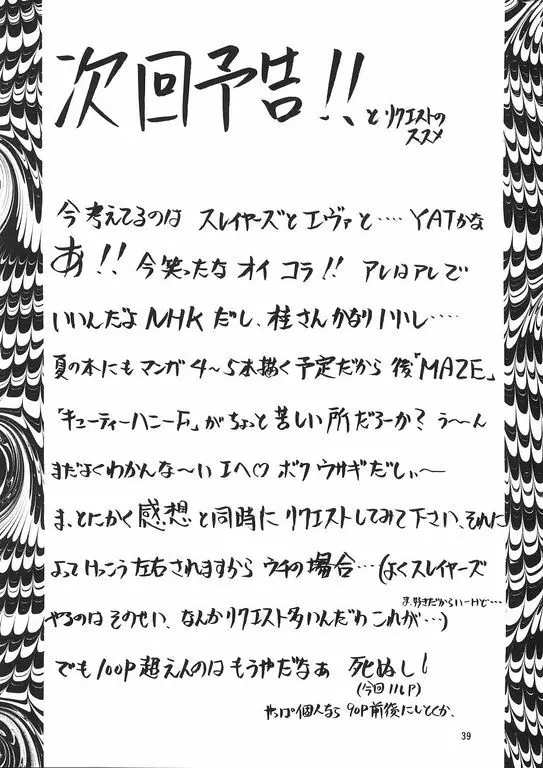 次回予告!! とリクエストの
ススメ
今考えてるのは スレイヤーズとエヴァと‥‥YATかな
あ!! 今笑ったな オイ コラ!! アレはアレで
いいんだよ NHKだし、桂さんかなりいいし‥‥
夏の本にもマンガ4〜5本描く予定だから 後「MAZE」
「キューティーハニーF」がちょっと苦しい所だろーか? う〜ん
まだよくわかんな〜い エヘ♡ ボク ウサギだしぃ〜
ま、とにかく感想と同時にリクエストしてみて下さい、それに
よってけっこう左右されますから ウチの場合…(よくスレイヤーズ
やるのは そのせい、なんかリクエスト多いんだわ これが…)
ま、好きだからいーけど…
でも100P超えんのは もうやだなぁ 死ぬし!
(今回116P)
やっぱ個人なら 90P前後にしとくか、
39